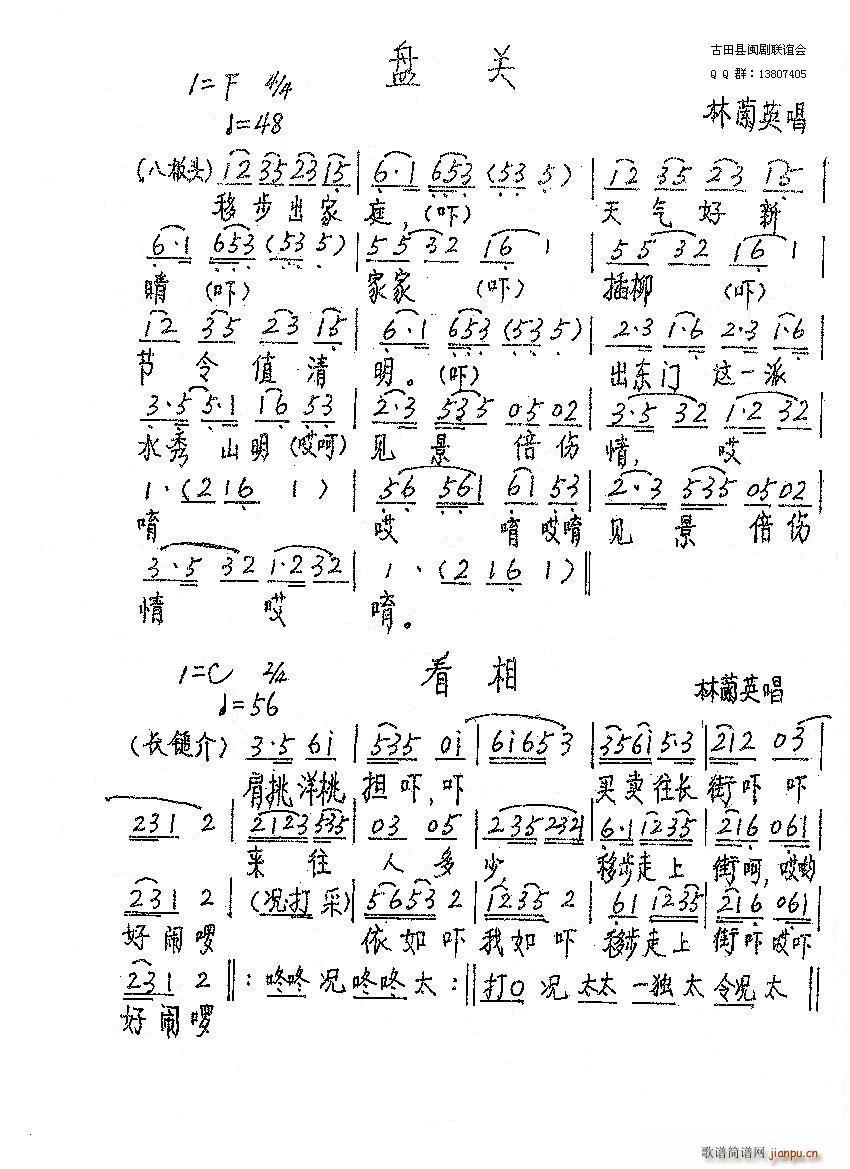 古田县闽剧联谊会
盘关
QQ群：13807405
1=F 4/4
♩=48
林蘭英唱
(八板头) 12 35 23 15 | 6·1 653 (53 5) | 12 35 23 15 |
移步出家 庭，(吓) 天气好新
6·1 653 (53 5) | 55 32 16 1 | 55 32 16 1 |
晴 (吓) 家家 (吓) 插柳 (吓)
12 35 23 15 | 6·1 653 (53 5) | 2·3 1·6 2·3 1·6 |
节令值清 明。(吓) 出东门 这一派
3·5 5·1 16 53 | 2·3 535 05 02 | 3·5 32 1·2 32 |
水秀山明 (哎呵) 见景倍伤 情，哎
1·(2 16 1) | 56 561 61 53 | 2·3 535 05 02 |
唷 哎 唷哎唷 见景倍伤
3·5 32 1·2 32 | 1·(2 16 1) ‖
情 哎 唷。
1=C 2/4
看相
♩=56
林蘭英唱
(长鎚介) 3·5 6i | 535 0i | 6i65 3 | 356i 5·3 | 2i2 03 |
肩挑洋桃 担吓，吓 买卖往长 街吓 吓
231 2 | 2123 535 | 03 05 | 235 232 | 6·1 1235 | 216 061 |
来往 人多 少， 移步走上 街呵，哎哟
231 2 | (况打采) | 5653 2 | 1235 2 | 61 1235 | 216 061 |
好闹啰 依如吓 我如吓 移步走上 街吓哎吓
231 2 ‖: 咚咚 况 咚咚 太 :‖ 打0 况 太太 一独 太 令况 太 ‖
好闹啰
歌谱简谱网 jianpu.cn